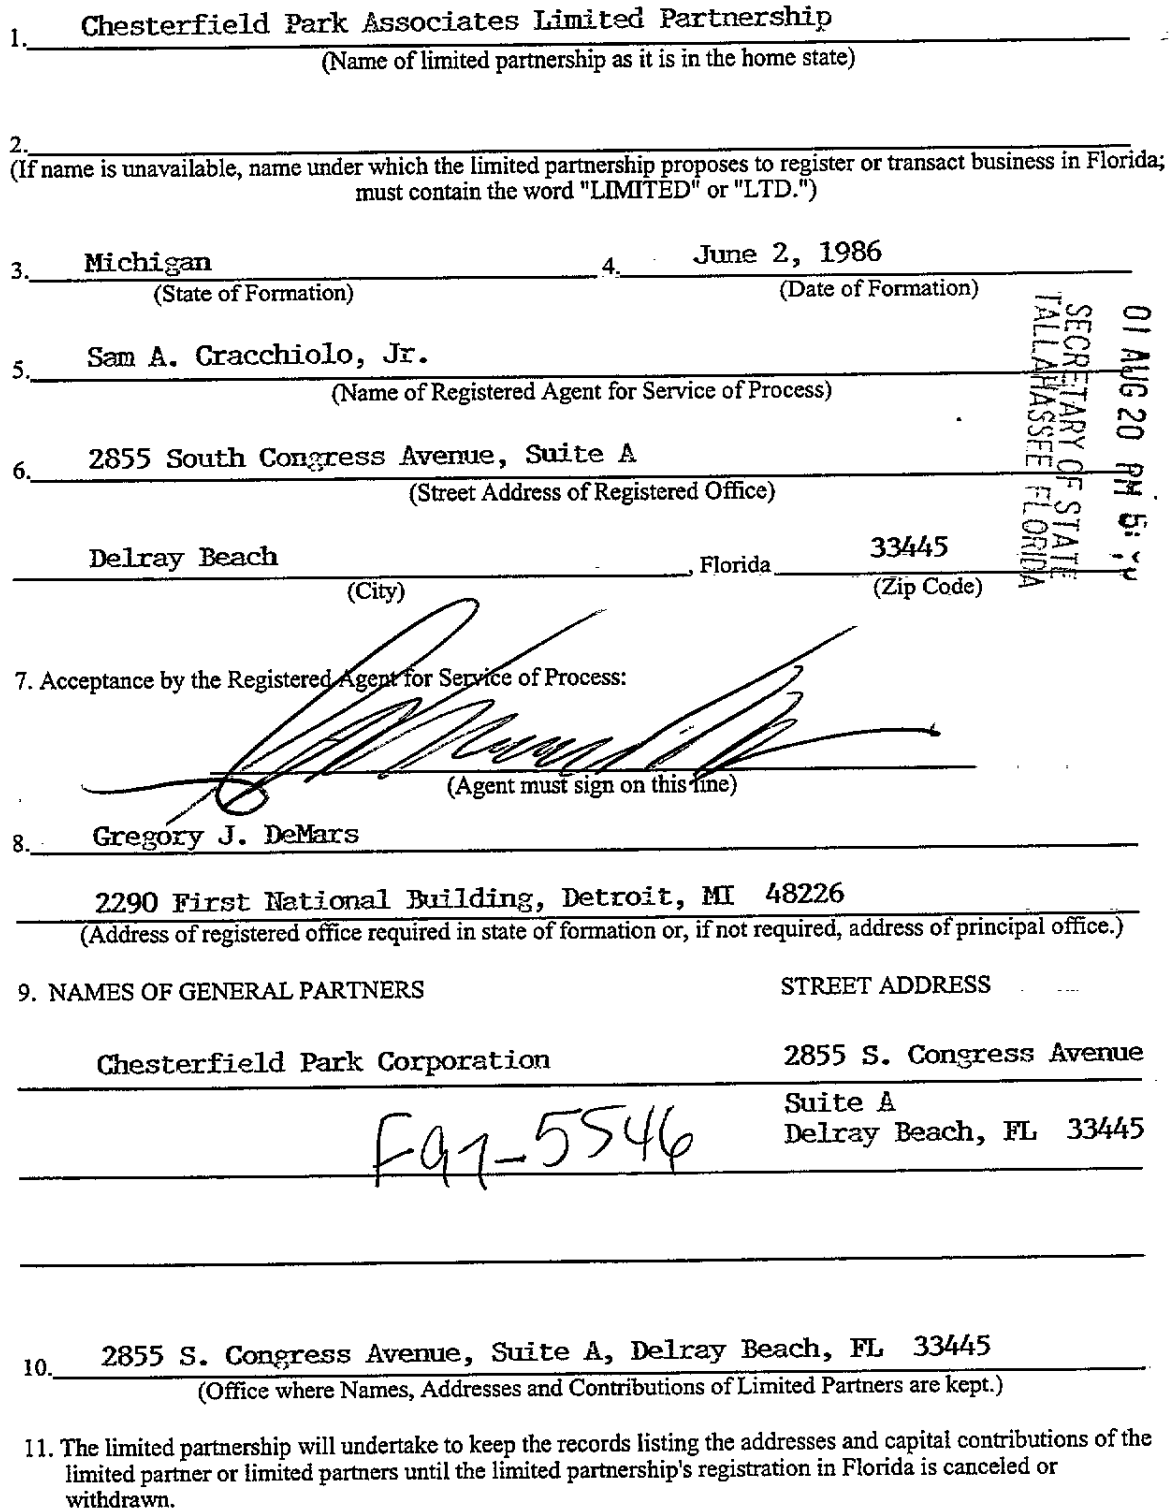 1. Chesterfield Park Associates Limited Partnership
(Name of limited partnership as it is in the home state)
2.
(If name is unavailable, name under which the limited partnership proposes to register or transact business in Florida;
must contain the word "LIMITED" or "LTD.")
3. Michigan 4. June 2, 1986
(State of Formation) (Date of Formation)
5. Sam A. Cracchiolo, Jr.
(Name of Registered Agent for Service of Process)
6. 2855 South Congress Avenue, Suite A
(Street Address of Registered Office)
01 AUG 20 PM
SECRETARY OF STATE
TALLAHASSEE FLORIDA
Delray Beach, Florida 33445
(City) (Zip Code)
7. Acceptance by the Registered Agent for Service of Process:
(Agent must sign on this line)
8. Gregory J. DeMars
2290 First National Building, Detroit, MI 48226
(Address of registered office required in state of formation or, if not required, address of principal office.)
9. NAMES OF GENERAL PARTNERS STREET ADDRESS
Chesterfield Park Corporation 2855 S. Congress Avenue
Suite A
Delray Beach, FL 33445
F97-5546
10. 2855 S. Congress Avenue, Suite A, Delray Beach, FL 33445
(Office where Names, Addresses and Contributions of Limited Partners are kept.)
11. The limited partnership will undertake to keep the records listing the addresses and capital contributions of the
limited partner or limited partners until the limited partnership's registration in Florida is canceled or
withdrawn.